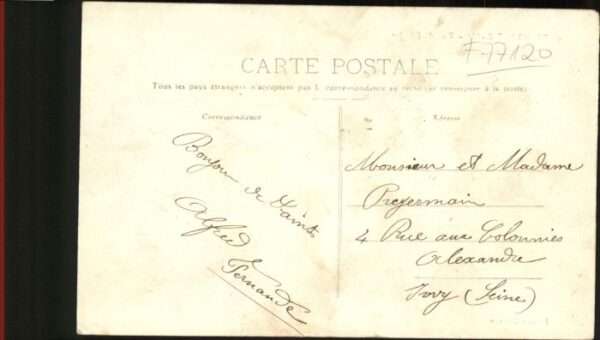 F-77120
CARTE POSTALE
Tous les pays étrangers n'acceptent pas la correspondance au recto (se renseigner à la poste)
Correspondance
Adresse
Bonjour de Saints
Alfred
Fernande
Monsieur et Madame
4 Rue aux Colonnies
Alexandre
Ivry (Seine)